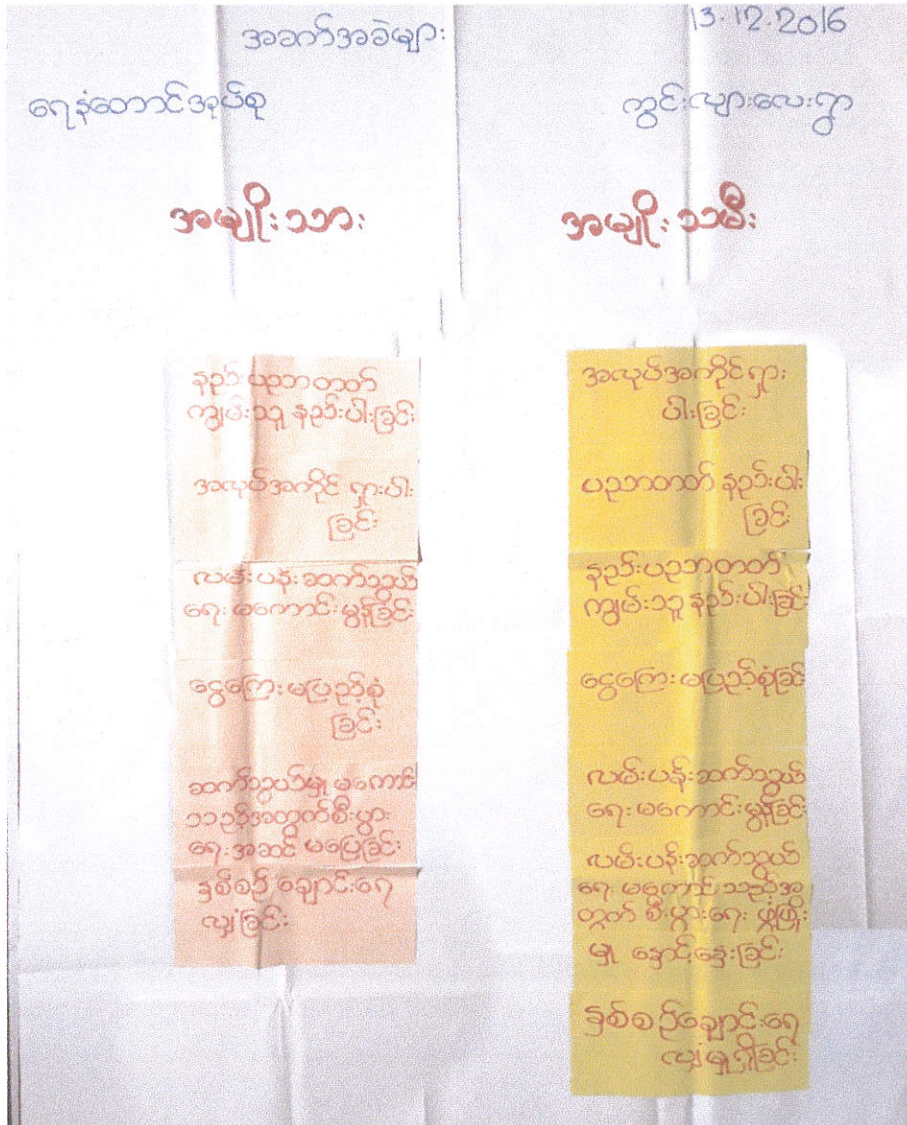 အခက်အခဲများ
13.12.2016
ရေနံတောင်အုပ်စု
ကွင်းလျားလေးရွာ
အမျိုးသား
နည်းပညာတတ်
ကျွမ်းသူ နည်းပါးခြင်း
အလုပ်အကိုင် ရှားပါး
ခြင်း
လမ်းပန်းဆက်သွယ်
ရေး မကောင်းမွန်ခြင်း
ငွေကြေး မပြည့်စုံ
ခြင်း
ဆက်သွယ်မှု မကောင်း
သည့်အတွက်စီးပွား
ရေး အဆင် မပြေခြင်း
နှစ်စဉ် ချောင်းရေ
လျှံခြင်း
အမျိုးသမီး
အလုပ်အကိုင်ရှား
ပါးခြင်း
ပညာတတ် နည်းပါး
ခြင်း
နည်းပညာတတ်
ကျွမ်းသူ နည်းပါးခြင်း
ငွေကြေး မပြည့်စုံခြင်း
လမ်းပန်းဆက်သွယ်
ရေး မကောင်းမွန်ခြင်း
လမ်းပန်းဆက်သွယ်
ရေး မကောင်းသည့်အ
တွက် စီးပွားရေး ဖွံ့ဖြိုး
မှု နှောင့်နှေးခြင်း
နှစ်စဉ်ချောင်းရေ
လျှံမှုရှိခြင်း